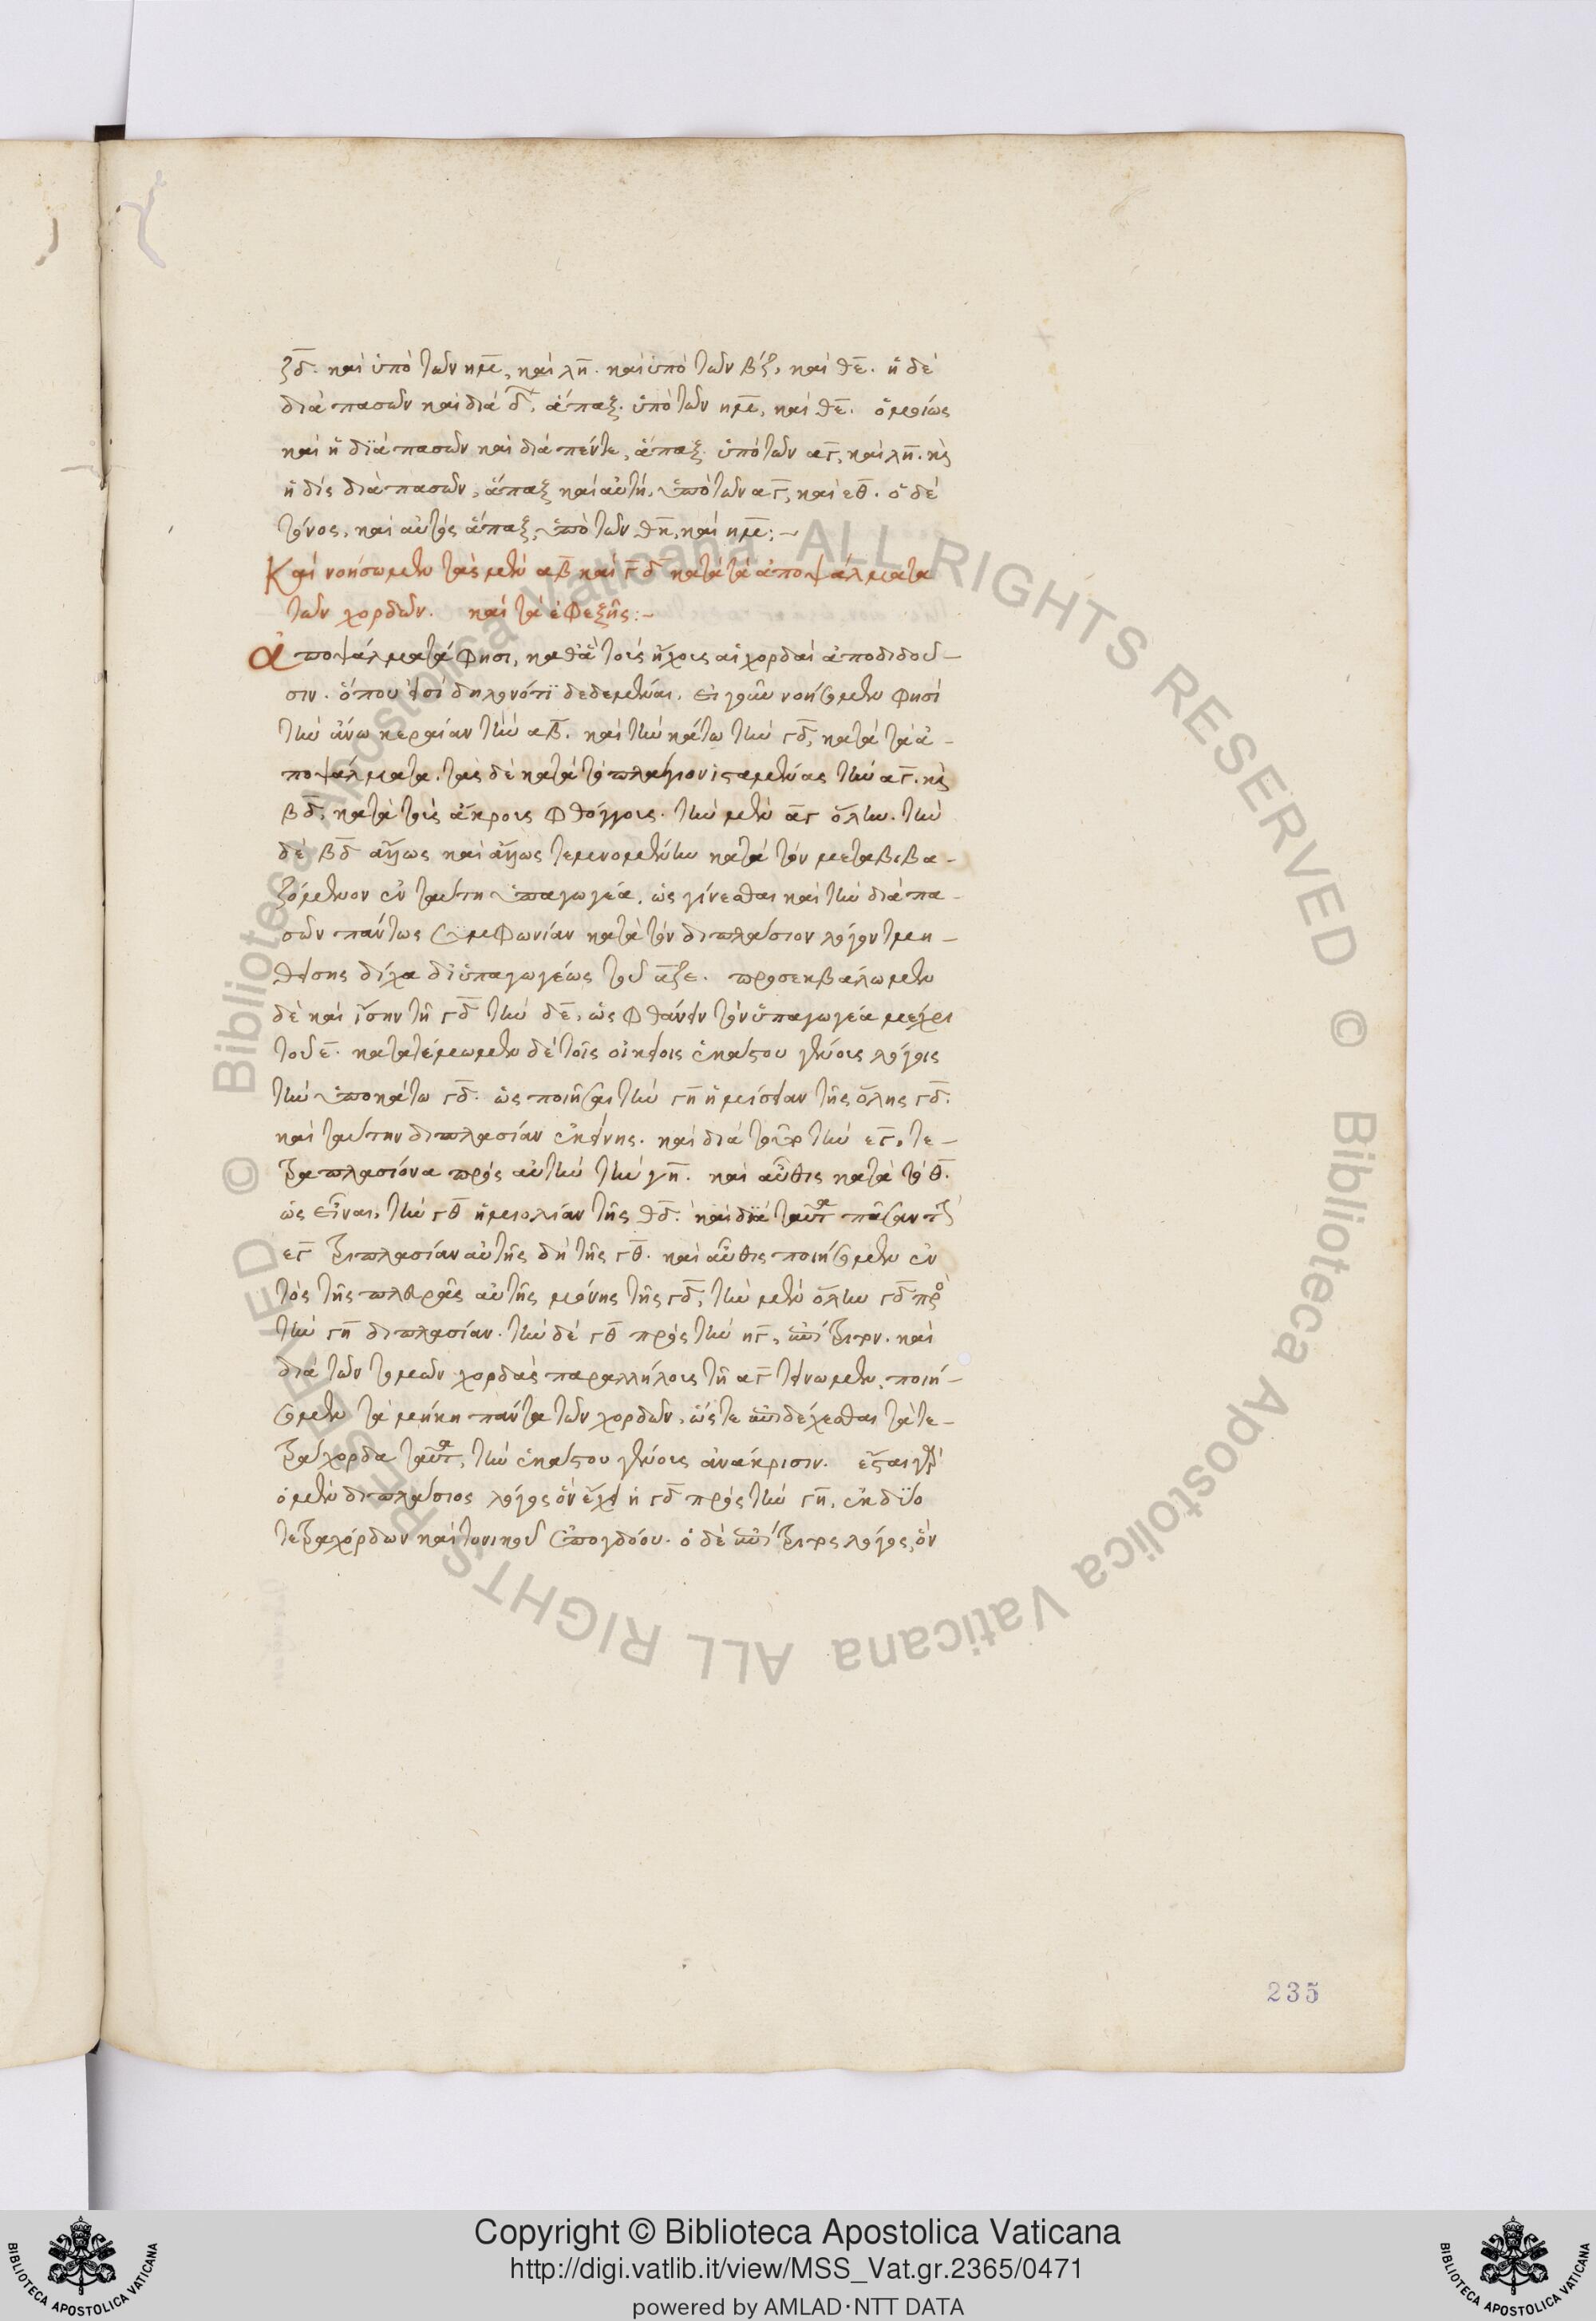 ζδ. καὶ ὑπὸ τῶν ημε, καὶ λη. καὶ ὑπὸ τῶν βζ, καὶ θε. ἡ δὲ
διὰ πασῶν καὶ διὰ δ, ἅπαξ. ὑπὸ τῶν ημε, καὶ θε. ὁμοίως
καὶ ἡ διὰ πασῶν καὶ διὰ πέντε, ἅπαξ. ὑπὸ τῶν αγ, καὶ λη. κς
ἡ δὶς διὰ πασῶν, ἅπαξ καὶ αὐτή, ὑπὸ τῶν αγ, καὶ εθ. ὁ δὲ
τόνος, καὶ αὐτὸς ἅπαξ, ὑπὸ τῶν θη, καὶ ημε:~
Καὶ νοήσωμεν τὰς μὲν αβ καὶ γδ κατὰ τὰ ἀποψάλματα
τῶν χορδῶν. καὶ τὰ ἐφεξῆς:~
Ἀποψάλματά φησι, καθὰ τοὺς ἤχους αἱ χορδαὶ ἀποδιδοῦ-
σιν. ὅπου εἰσὶ δηλονότι δεδεμέναι. εἰ γοῦν νοήσομεν φησὶ
τὴν ἄνω κεραίαν τὴν αβ. καὶ τὴν κάτω τὴν γδ, κατὰ τὰ ἀ-
ποψάλματα. τὰς δὲ κατὰ τὸ πλάγιον ἱσταμένας τὴν αγ. κς
βδ, κατὰ τοὺς ἄκρους φθόγγους. τὴν μὲν αγ ὅλην. τὴν
δὲ βδ ἄλλως καὶ ἄλλως τεμνομένην κατὰ τὸν μεταβιβα-
ζόμενον ἐν ταύτη ὑπαγωγέα, ὡς γίνεσθαι καὶ τὴν διὰ πα-
σῶν πάντως συμφωνίαν κατὰ τὸν διπλάσιον λόγον τμη-
θείσης δίχα δι' ὑπαγωγέως τοῦ αζε. προσεκβαλῶμεν
δὲ καὶ ἴσην τῇ γδ τὴν δε, ὡς φθάνειν τὸν ὑπαγωγέα μέχρι
τοῦ ε. κατατέμωμεν δὲ τοῖς οἰκείοις ἑκάστου γένους λόγοις
τὴν ὑποκάτω γδ. ὡς ποιῆσαι τὴν γη ἡμίσειαν τῆς ὅλης γδ.
καὶ ταύτην διπλασίαν ἐκείνης. καὶ διὰ τοῦτο τὴν εγ, τε-
τραπλασίονα πρὸς αὐτὴν τὴν γη. καὶ αὖθις κατὰ τὸ θ.
ὡς εἶναι, τὴν γθ ἡμιολίαν τῆς θδ. καὶ διὰ ταῦτα πᾶσαν τὴν
εγ τριπλασίαν αὐτῆς δὴ τῆς γθ. καὶ αὖθις ποιήσομεν ἐν
τὸς τῆς πλευρᾶς αὐτῆς μόνης τῆς γδ, τὴν μὲν ὅλην γδ πρὸ
τὴν γη διπλασίαν. τὴν δὲ γθ πρὸς τὴν ηγ, ἐπίτριτον. καὶ
διὰ τῶν τομῶν χορδὰς παραλλήλους τῇ αγ τείνωμεν, ποιή-
σομεν τὰ μήκη πάντα τῶν χορδῶν, ὥςτε ἐπιδέχεσθαι τὰ τε-
τράχορδα ταῦτα, τὴν ἑκάστου γένους ἀνάκρισιν. ἔσται γὰρ
ὁ μὲν διπλάσιος λόγος ὃν ἔχει ἡ γδ πρὸς τὴν γη, ἐκ δύο
τετραχόρδων καὶ τονικοῦ ἐπογδόου. ὁ δὲ ἐπίτριτος λόγος, ὃν
235
Copyright © Biblioteca Apostolica Vaticana
http://digi.vatlib.it/view/MSS_Vat.gr.2365/0471
powered by AMLAD·NTT DATA
BIBLIOTECA APOSTOLICA VATICANA
BIBLIOTECA APOSTOLICA VATICANA
© Biblioteca Apostolica Vaticana ALL RIGHTS RESERVED © Biblioteca Apostolica Vaticana ALL RIGHTS RESERVED